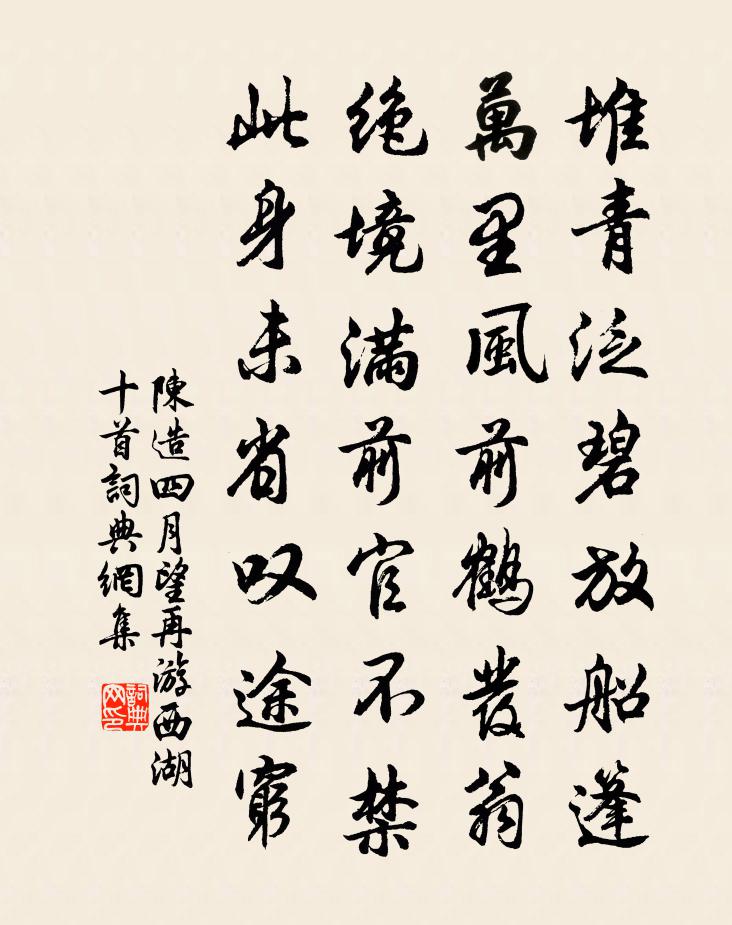 堆青泛碧放船篷
萬里風前鶴發翁
絕境滿前官不禁
此身未省叹途窮
陳造四月望再游西湖
十首詞典網集
詞典网印